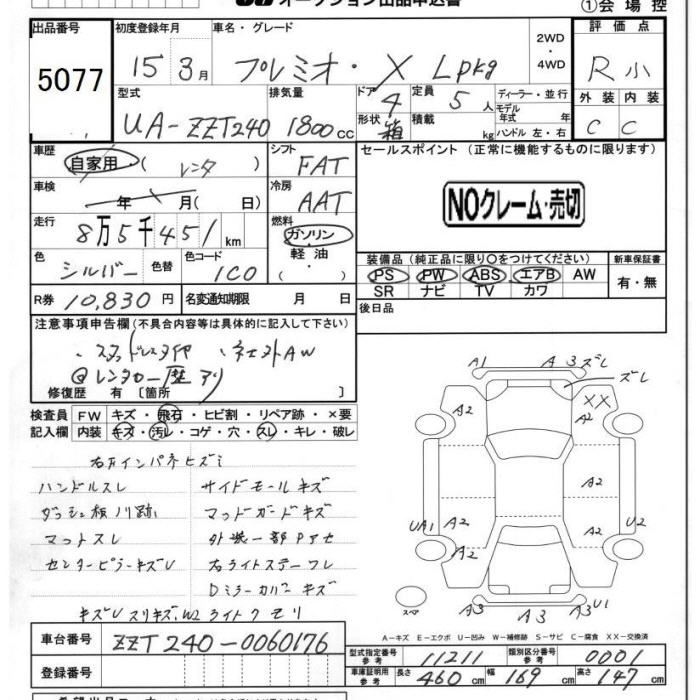 オークション出品申込書 ①会場控
出品番号 初度登録年月 車名・グレード 2WD・4WD 評価点
5077 15年 3月 プレミオ・X Lpkg R 小
型式 排気量 ドア 4 形状 箱 定員 5人 積載 kg ディーラー・並行 モデル年式 年 ハンドル 左・右 外装 内装
UA-ZZT240 1800cc C C
車歴 自家用・( レンタ ) シフト FAT セールスポイント (正常に機能するものに限ります)
車検 年 月( 日) 冷房 AAT NOクレーム・売切
走行 8万5千451km 燃料 ガソリン・軽油・( )
色 シルバー 色替 色コード 1C0 装備品 (純正品に限り○をつけてください) 新車保証書
PS PW ABS エアB AW 有・無
SR ナビ TV カワ
R券 10,830円 名変通知期限 月 日 後日品
注意事項申告欄 (不具合内容等は具体的に記入して下さい)
・スタッドレスタイヤ ・社外AW
◎レンタカー歴アリ
修復歴 有 〔箇所 〕
検査員記入欄 FW キズ・飛石・ヒビ割・リペア跡・×要
内装 キズ・汚レ・コゲ・穴・スレ・キレ・破レ
右Fインパネヒズミ
ハンドルスレ サイドモールキズ
ダッシュ板ノリ跡 マッドガードキズ
マットスレ 外装一部Pアセ
センターピラーキズU 右ライトステーズレ
Dミラーカバーキズ
キズUスリキズ、W2 ライトクモリ
A1 A3ズレ
ズレ
A2 XX A2
A2
UA1 A2 A2 U2
A2
スペア A3 A3 U1
A-キズ E-エクボ U-凹み W-補修跡 S-サビ C-腐食 XX-交換済
車台番号 ZZT240-0060176
型式指定番号 参考 11211 類別区分番号 参考 0001
登録番号 車庫証明用 参考 長さ 460cm 幅 169cm 高さ 147cm